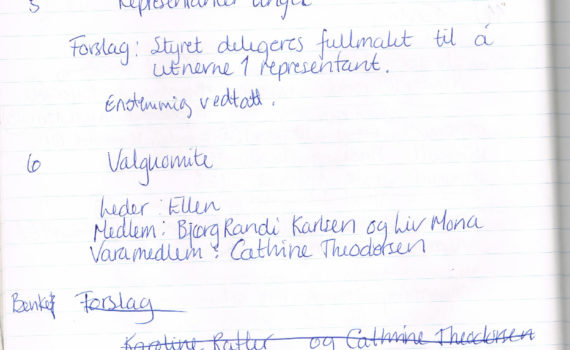 5 Representanter
Forslag: Styret delegeres fullmakt til å
utnevne 1 representant.
Enstemmig vedtatt.
6 Valgkomite
Leder: Ellen
Medlem: Bjørg Randi Karlsen og Liv Mona
Varamedlem: Cathrine Theodorsen
Benket Forslag
Karoline og Cathrine Theodorsen